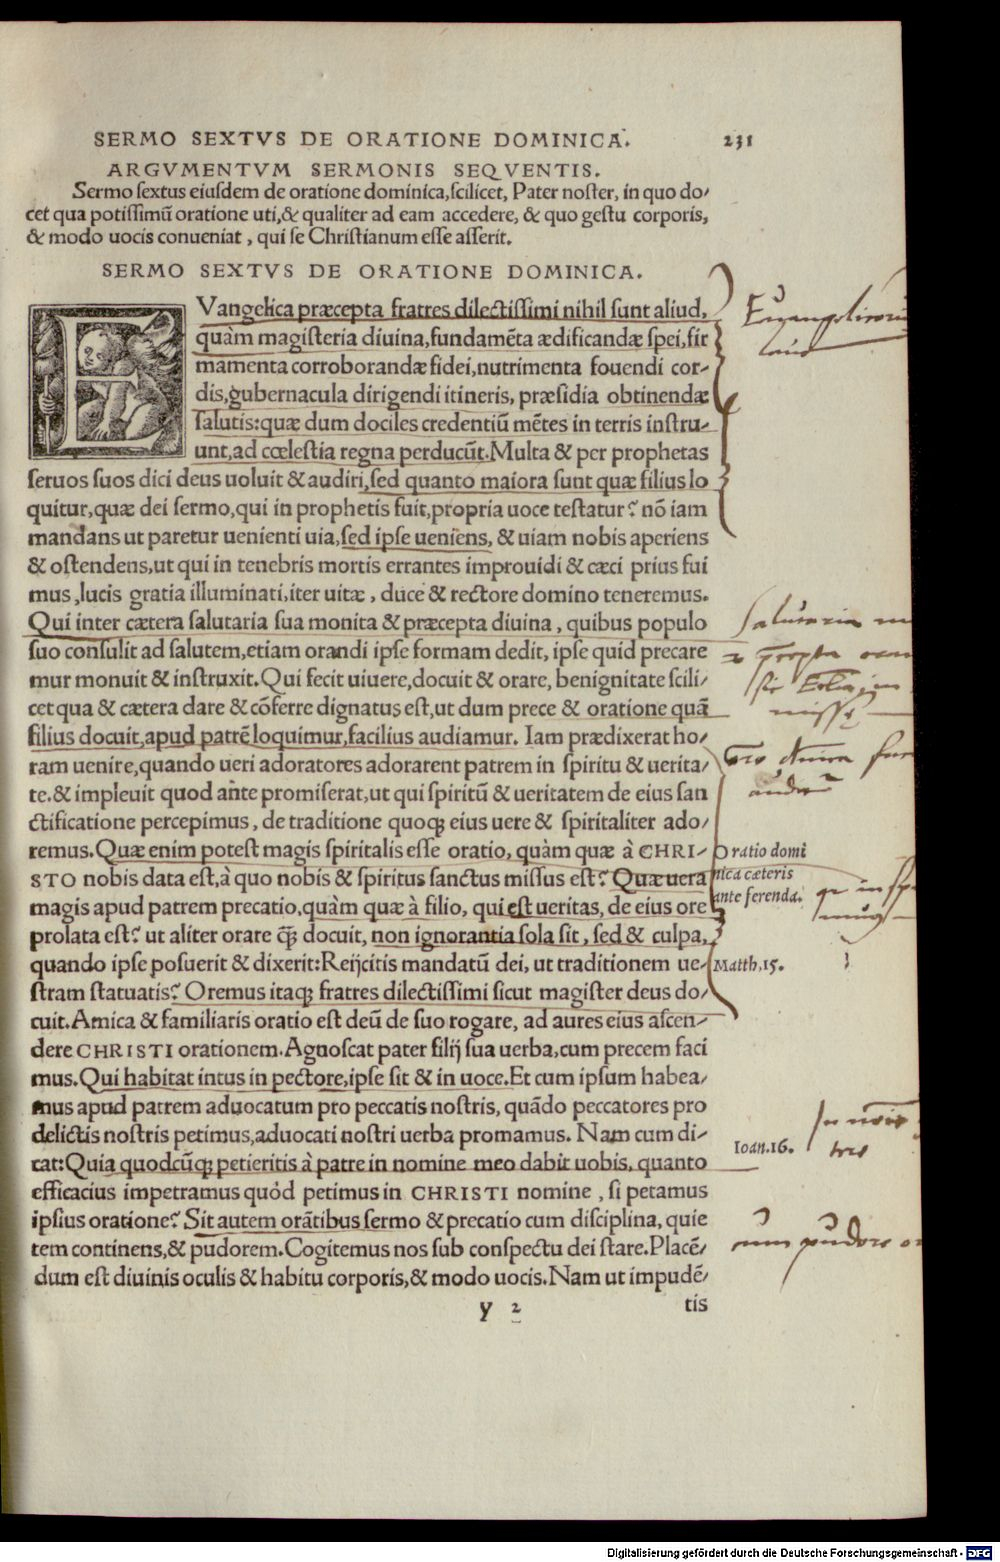 SERMO SEXTVS DE ORATIONE DOMINICA. 231
ARGVMENTVM SERMONIS SEQVENTIS.
Sermo sextus eiusdem de oratione dominica, scilicet, Pater noster, in quo do/
cet qua potissimū oratione uti, & qualiter ad eam accedere, & quo gestu corporis,
& modo uocis conueniat, qui se Christianum esse asserit.
SERMO SEXTVS DE ORATIONE DOMINICA.
EVangelica præcepta fratres dilectissimi nihil sunt aliud,
quàm magisteria diuina, fundamēta ædificandæ spei, fir
mamenta corroborandæ fidei, nutrimenta fouendi cor-
dis, gubernacula dirigendi itineris, præsidia obtinendæ
salutis: quæ dum dociles credentiū mētes in terris instru-
unt, ad cœlestia regna perducūt. Multa & per prophetas
seruos suos dici deus uoluit & audiri, sed quanto maiora sunt quæ filius lo
quitur, quæ dei sermo, qui in prophetis fuit, propria uoce testatur? nō iam
mandans ut paretur uenienti uia, sed ipse ueniens, & uiam nobis aperiens
& ostendens, ut qui in tenebris mortis errantes improuidi & cæci prius fui
mus, lucis gratia illuminati, iter uitæ, duce & rectore domino teneremus.
Qui inter cætera salutaria sua monita & præcepta diuina, quibus populo
suo consulit ad salutem, etiam orandi ipse formam dedit, ipse quid precare
mur monuit & instruxit. Qui fecit uiuere, docuit & orare, benignitate scili/
cet qua & cætera dare & cōferre dignatus est, ut dum prece & oratione quā
filius docuit, apud patrē loquimur, facilius audiamur. Iam prædixerat ho/
ram uenire, quando ueri adoratores adorarent patrem in spiritu & uerita/
te. & impleuit quod ante promiserat, ut qui spiritū & ueritatem de eius san
ctificatione percepimus, de traditione quoqꝫ eius uere & spiritaliter ado/
remus. Quæ enim potest magis spiritalis esse oratio, quàm quæ à CHRI/
STO nobis data est, à quo nobis & spiritus sanctus missus est? Quæ uera
magis apud patrem precatio, quàm quæ à filio, qui est ueritas, de eius ore
prolata est? ut aliter orare q̄ꝫ docuit, non ignorantia sola sit, sed & culpa,
quando ipse posuerit & dixerit: Reijcitis mandatū dei, ut traditionem ue/
stram statuatis? Oremus itaqꝫ fratres dilectissimi sicut magister deus do/
cuit. Amica & familiaris oratio est deū de suo rogare, ad aures eius ascen/
dere CHRISTI orationem. Agnoscat pater filij sua uerba, cum precem faci
mus. Qui habitat intus in pectore, ipse sit & in uoce. Et cum ipsum habea/
mus apud patrem aduocatum pro peccatis nostris, quādo peccatores pro
delictis nostris petimus, aduocati nostri uerba promamus. Nam cum di/
cat: Quia quodcūqꝫ petieritis à patre in nomine meo dabit uobis, quanto
efficacius impetramus quód petimus in CHRISTI nomine, si petamus
ipsius oratione? Sit autem orātibus sermo & precatio cum disciplina, quie
tem continens, & pudorem. Cogitemus nos sub conspectu dei stare. Placē/
dum est diuinis oculis & habitu corporis, & modo uocis. Nam ut impudē/
y 2 tis
Oratio domi
nica cæteris
ante ferenda.
Matth. 15.
Ioan. 16.
Digitalisierung gefördert durch die Deutsche Forschungsgemeinschaft - DFG